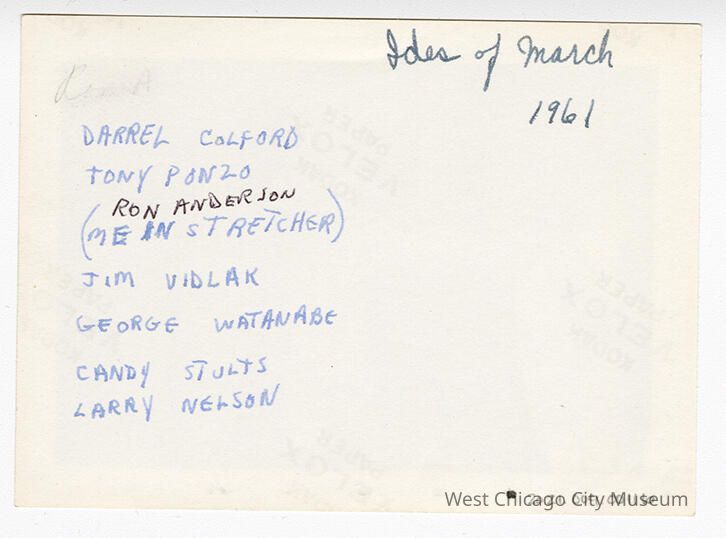 Ides of March
1961
DARREL COLFORD
TONY PONZO
RON ANDERSON
(ME IN STRETCHER)
JIM VIDLAK
GEORGE WATANABE
CANDY STULTS
LARRY NELSON
KODAK
VELOX
PAPER
KODAK
VELOX
PAPER
West Chicago City Museum